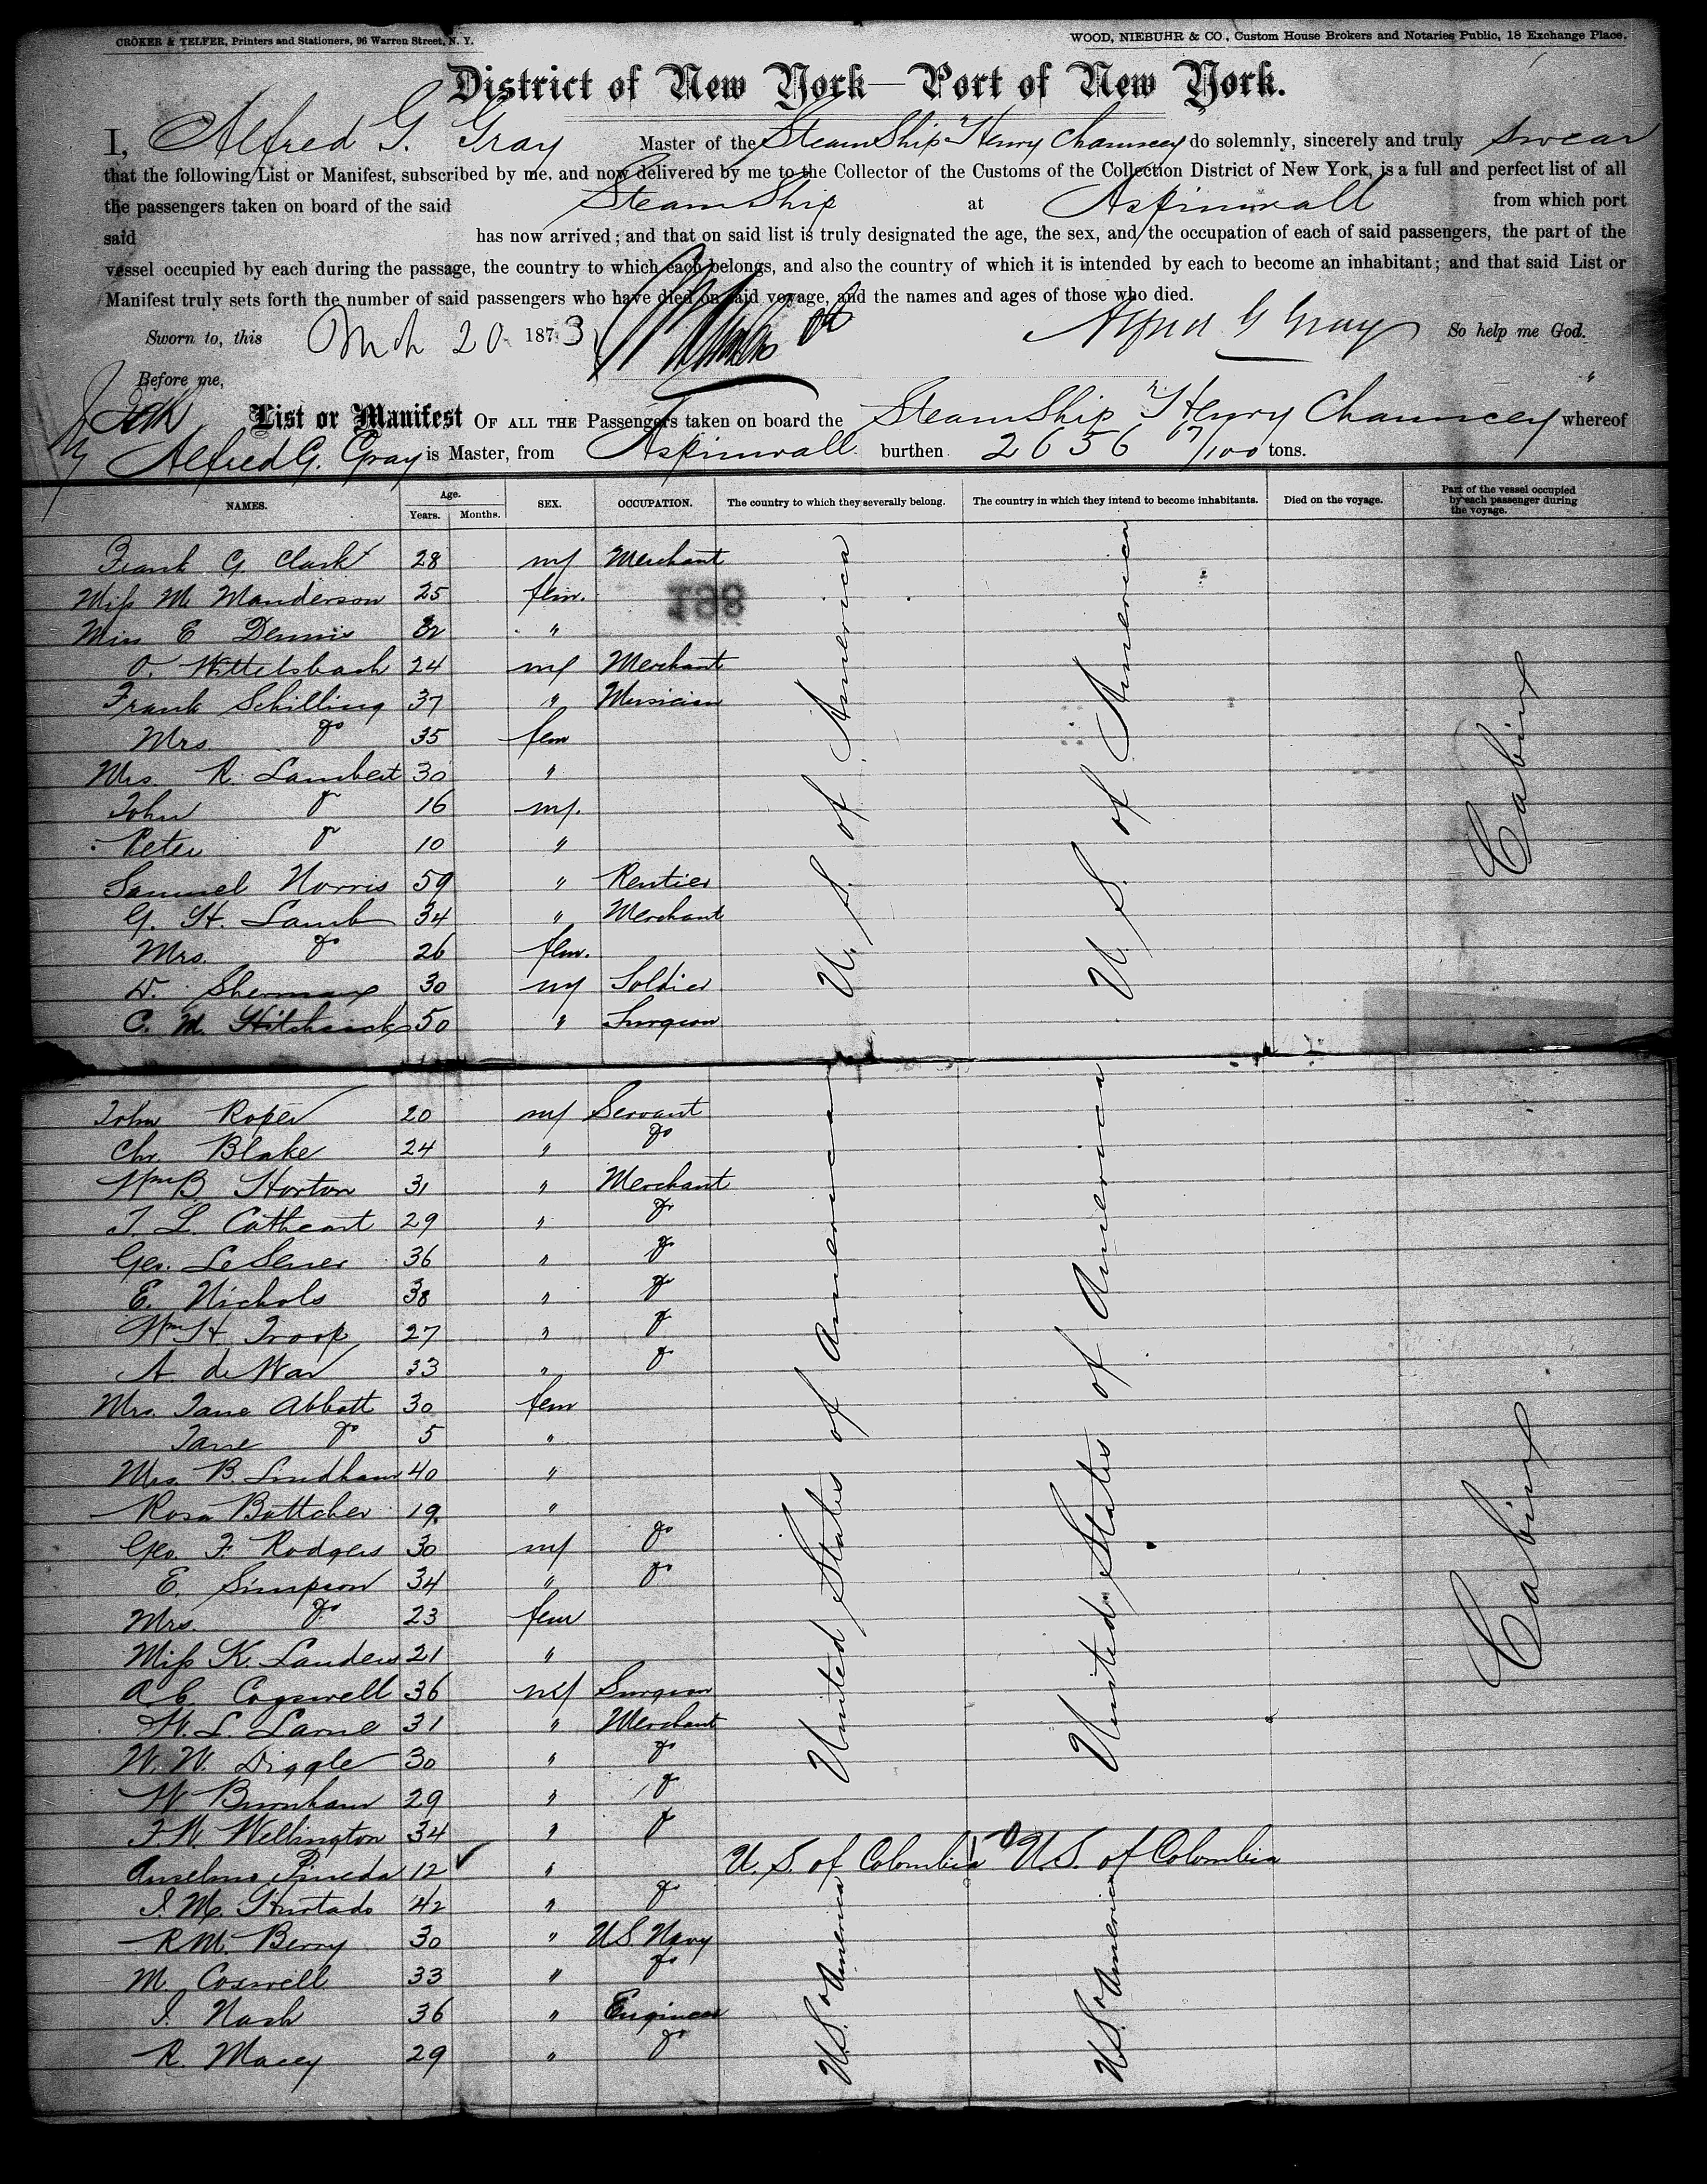 CROKER & TELFER, Printers and Stationers, 96 Warren Street, N. Y.
WOOD, NIEBUHR & CO., Custom House Brokers and Notaries Public, 18 Exchange Place.
District of New York—Port of New York.
I, Alfred G. Gray Master of the SteamShip "Henry Chauncey do solemnly, sincerely and truly swear
that the following List or Manifest, subscribed by me, and now delivered by me to the Collector of the Customs of the Collection District of New York, is a full and perfect list of all
the passengers taken on board of the said SteamShip at Aspinwall from which port
said has now arrived; and that on said list is truly designated the age, the sex, and the occupation of each of said passengers, the part of the
vessel occupied by each during the passage, the country to which each belongs, and also the country of which it is intended by each to become an inhabitant; and that said List or
Manifest truly sets forth the number of said passengers who have died on said voyage, and the names and ages of those who died.
Sworn to, this Mch 20 1873 Alfred G Gray So help me God.
Before me,
List or Manifest OF ALL THE Passengers taken on board the SteamShip "Henry Chauncey whereof
Alfred G. Gray is Master, from Aspinwall burthen 2656 67/100 tons.
NAMES. Age. Years. Months. SEX. OCCUPATION. The country to which they severally belong. The country in which they intend to become inhabitants. Died on the voyage. Part of the vessel occupied by each passenger during the voyage.
Frank G Clark 28 m/ Merchant
Miss M. Manderson 25 fem.
198
Miss E Dennis 32 "
O. Wittelsbach 24 m/ Merchant
Frank Schilling 37 " Musician
Mrs. do 35 fem
Mrs R. Lambert 30 "
John do 16 m/.
Peter do 10 "
Samuel Norris 59 " Rentier
G. H. Lamb 34 " Merchant
Mrs. do 26 fem.
W. Sherman 30 m/ Soldier
C. M. Hitchcock 50 " Surgeon
U. S. of America
U. S. of America
Cabin
John Roper 20 m/ Servant
Chr. Blake 24 " do
Wm B. Horton 31 " Merchant
T. L. Cathcart 29 " do
Geo. LeSener 36 " do
E. Nichols 38 " do
Wm H. Troop 27 " do
A. de War 33 " do
Mrs. Jane Abbott 30 fem
Jane do 5 "
Mrs. B. Lindham 40 "
Rosa Bottcher 19 "
Geo. F. Rodgers 30 m/ do
E. Simpson 34 " do
Mrs. do 23 fem
Miss K. Landers 21 "
A C. Cogswell 36 m/ Surgeon
W. L. Larne 31 " Merchant
W. W. Diggle 30 " do
W Burnham 29 " do
F. W Wellington 34 " do
Anselmo Pineda 12 ✓ " U. S. of Colombia U.S. of Colombia
J. M. Hurtado 42 " do
R M. Berry 30 " U.S. Navy
M. Coswell 33 " do
J. Nash 36 " Engineer
R. Macey 29 " do
United States of America
United States of America
Cabin
U.S. o America
U.S. o America